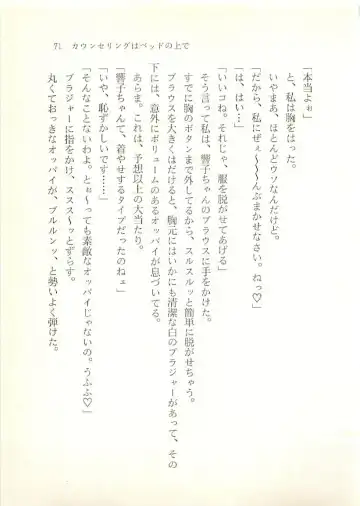 71 カウンセリングはベッドの上で
「本当よぉ」
と、私は胸をはった。
いやまあ、ほとんどウソなんだけど。
「だから、私にぜぇ〜〜〜んぶまかせなさい。ねっ♡」
「は、はい…」
「いいコね。それじゃ、服を脱がせてあげる」
そう言って私は、響子ちゃんのブラウスに手をかけた。
すでに胸のボタンまで外してるから、スルスルッと簡単に脱がせちゃう。
ブラウスを大きくはだけると、胸元にはいかにも清潔な白のブラジャーがあって、その
下には、意外にボリュームのあるオッパイが息づいてる。
あらま。これは、予想以上の大当たり。
「響子ちゃんて、着やせするタイプだったのねェ」
「いや、恥ずかしいです……」
「そんなことないわよ。とぉ〜っても素敵なオッパイじゃないの。うふふ♡」
ブラジャーに指をかけ、スススーッとずらす。
丸くておっきなオッパイが、ブルルンッ、と勢いよく弾けた。